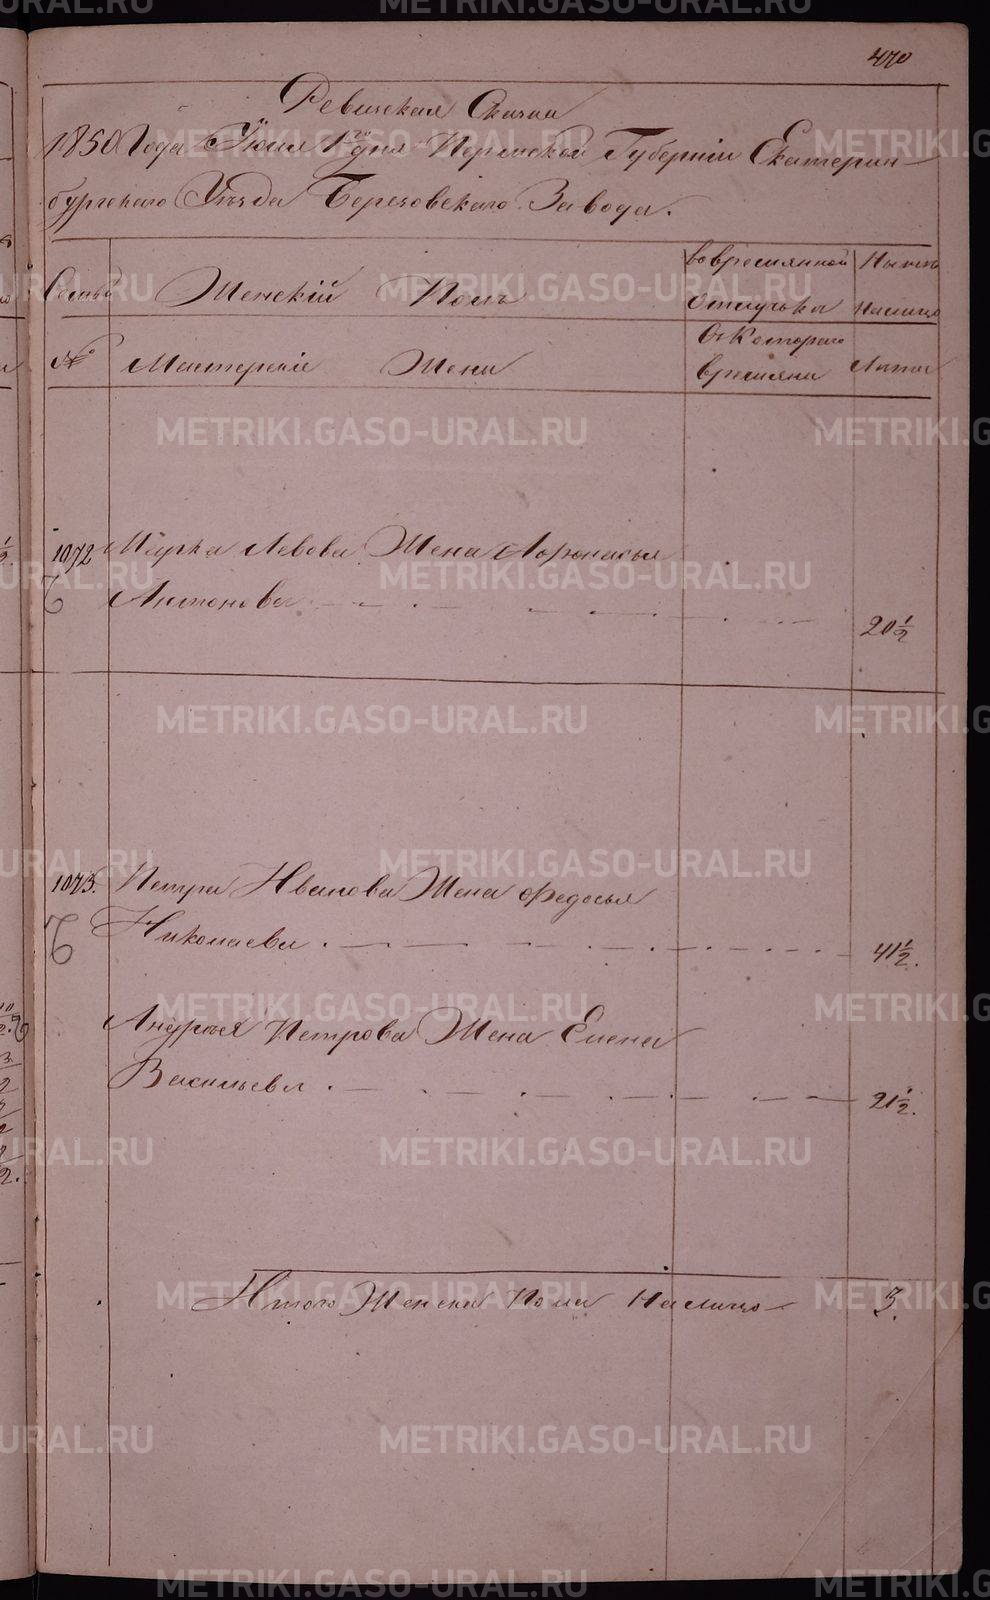 470
Ревизская Сказка
1850 Года Июля 1го дня Пермской Губернiи Екатерин-
бургскаго Уѣзда Березовскаго Завода.
Семьи Женскiй Полъ
Во временной отлучькѣ
Нынѣ на лицо
№ Мастерскiе Жены
Съ Котораго времяни
Лѣта
1072 Марка Левова Жена Афонасья
Антонова 20 1/2
1073. Петра Иванова Жена Федосья
Николаева 41 1/2.
Андрѣя Петрова Жена Елена
Васильева 21 1/2.
Итого Женска Пола На лицо 3.
METRIKI.GASO-URAL.RU